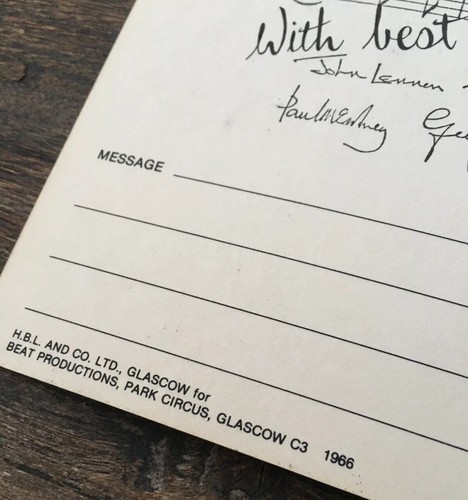 With best
John Lennon
Paul McCartney Ge
MESSAGE
H.B.L. AND CO. LTD., GLASCOW for
BEAT PRODUCTIONS, PARK CIRCUS, GLASCOW C3 1966